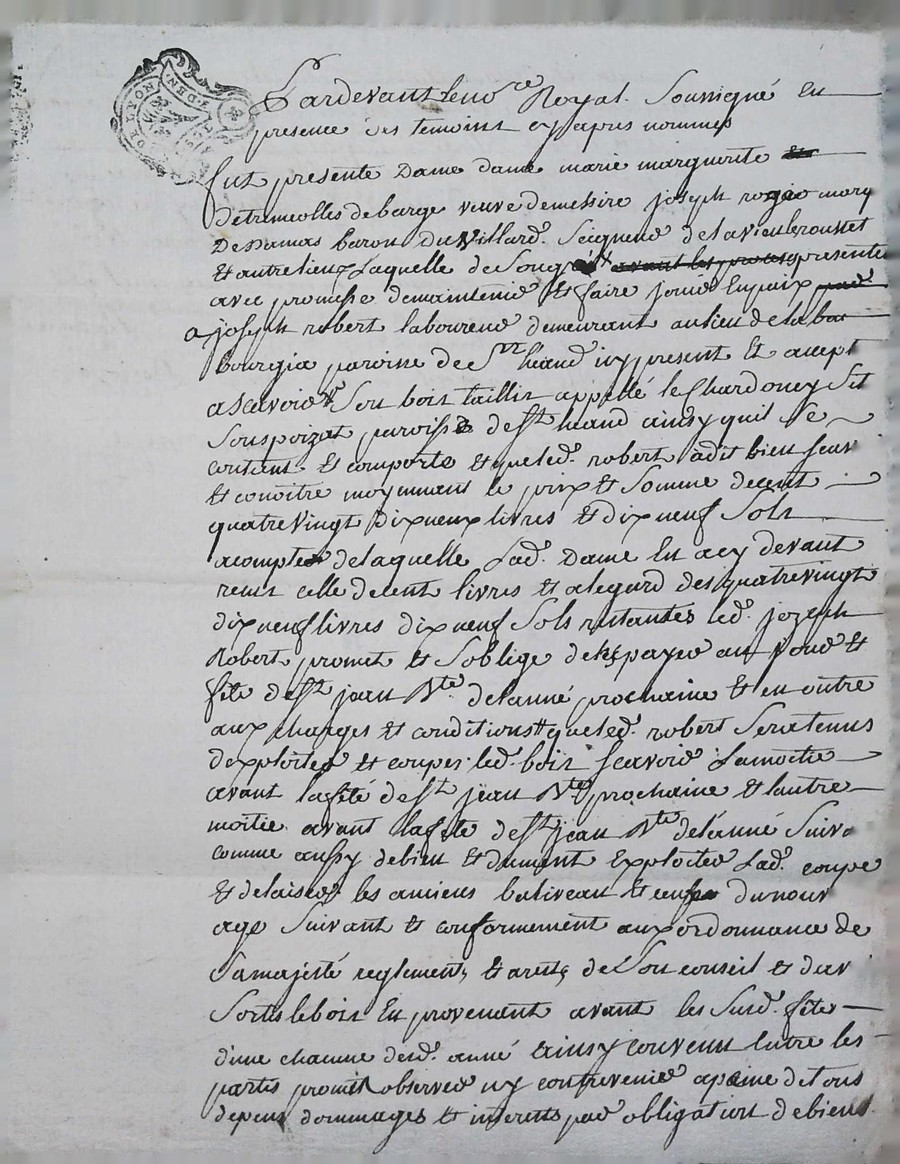 Pardevant le no.re Royal Soussigné En
presence des temoins cy apres nommés
fut presente Dame dame marie marguerite
Detrimeolles debarge veuve demessire joseph roger mary
De Damas baron Du Villard Seigneur de la vieu
Et autre lieux Laquelle de Son gré avant les presentes
avec promesse demaintenir Et faire jouir En paix
a joseph robert laboureur demeurant au lieu de la
bourgia paroisse de St haand icy present Et accept
ascavoir Son bois taillis appellé le Chardoney Sit
Sous poizat paroisse de St haand ainsy quil Se
contient Et comporte Et que led. robert à dit bien scav
et conoitre moyennant le prix Et Somme de cent
quatre Vingt Dix neux livres Et dix neuf Sols
acompte de laquelle Lad. Dame En a cy devant
receu celle de cent livres Et alegard des quatrevingt
dix neuf livres dix neuf Sols restantes led. jozeph
Robert promet Et Soblige de payer au jour Et
fete de St jean Bte delanné prochaine Et en outre
aux charges Et conditions que led. robert Sera tenus
dexploiter Et couper led. bois scavoir Lamoitie
avant la fete de St jean Bte prochaine Et lautre
moitie avant la fete de St jean Bte de lanné Suiv
comme aussy de bien Et dument Exploiter Lad. coupe
Et delaisser les anciens baliveau Et ceux du nouv
age Suivant Et conformement aux ordonnance de
Samajesté reglements Et arets de Son conseil Et dav
Sortir le bois En provenment avant les Susd. fete
dune chacune desd. anné Ainsy convenu Entre les
partis promet observer ny contrevenir a paine de tous
depens dommages Et interetts par obligation de biens